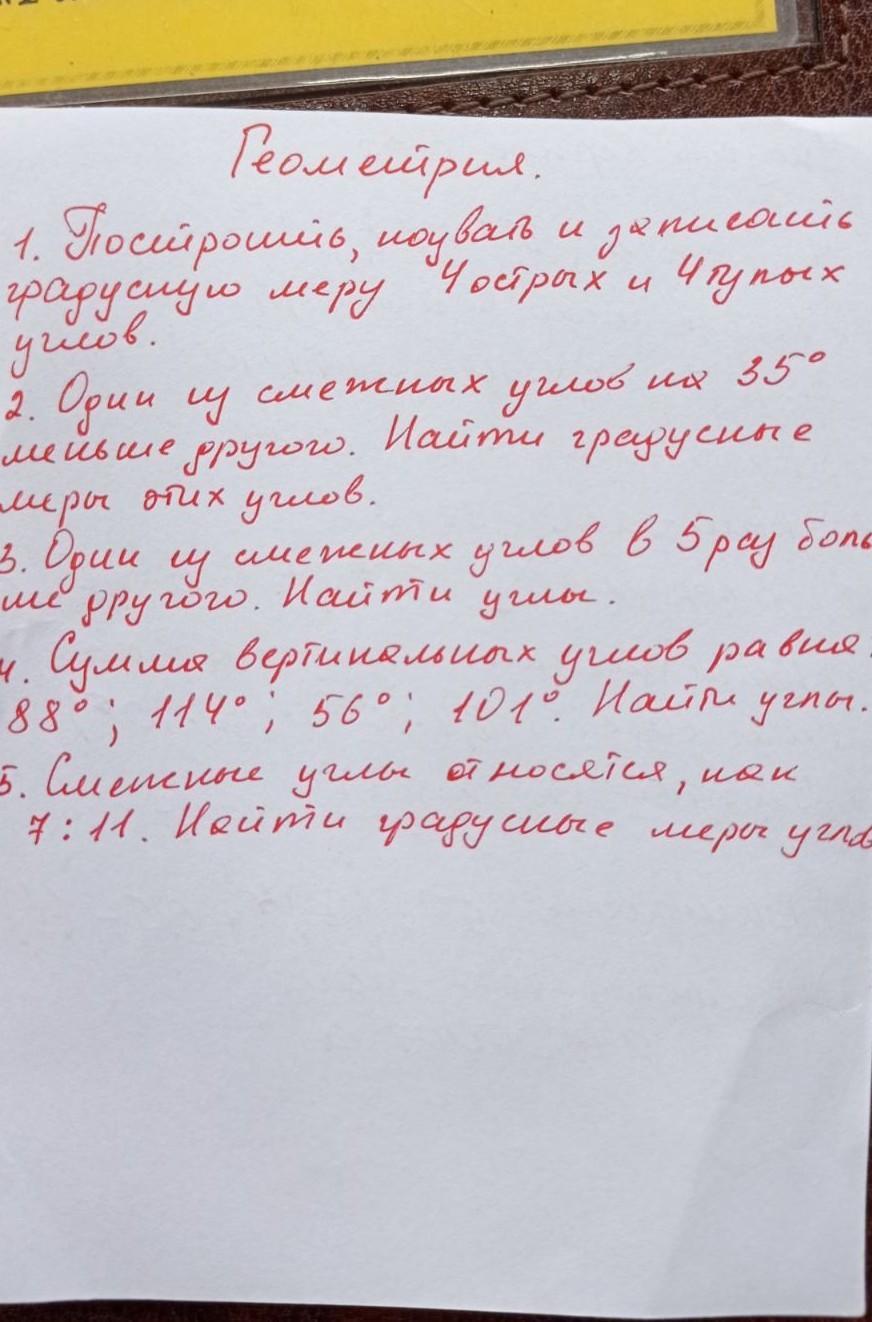 Геометрия.
1. Построить, назвать и записать
градусную меру 4 острых и 4 тупых
углов.
2. Один из смежных углов на 35°
меньше другого. Найти градусные
меры этих углов.
3. Один из смежных углов в 5 раз боль
ше другого. Найти углы.
4. Сумма вертикальных углов равна:
88°; 114°; 56°; 101°. Найти углы.
5. Смежные углы относятся, как
7:11. Найти градусные меры углов